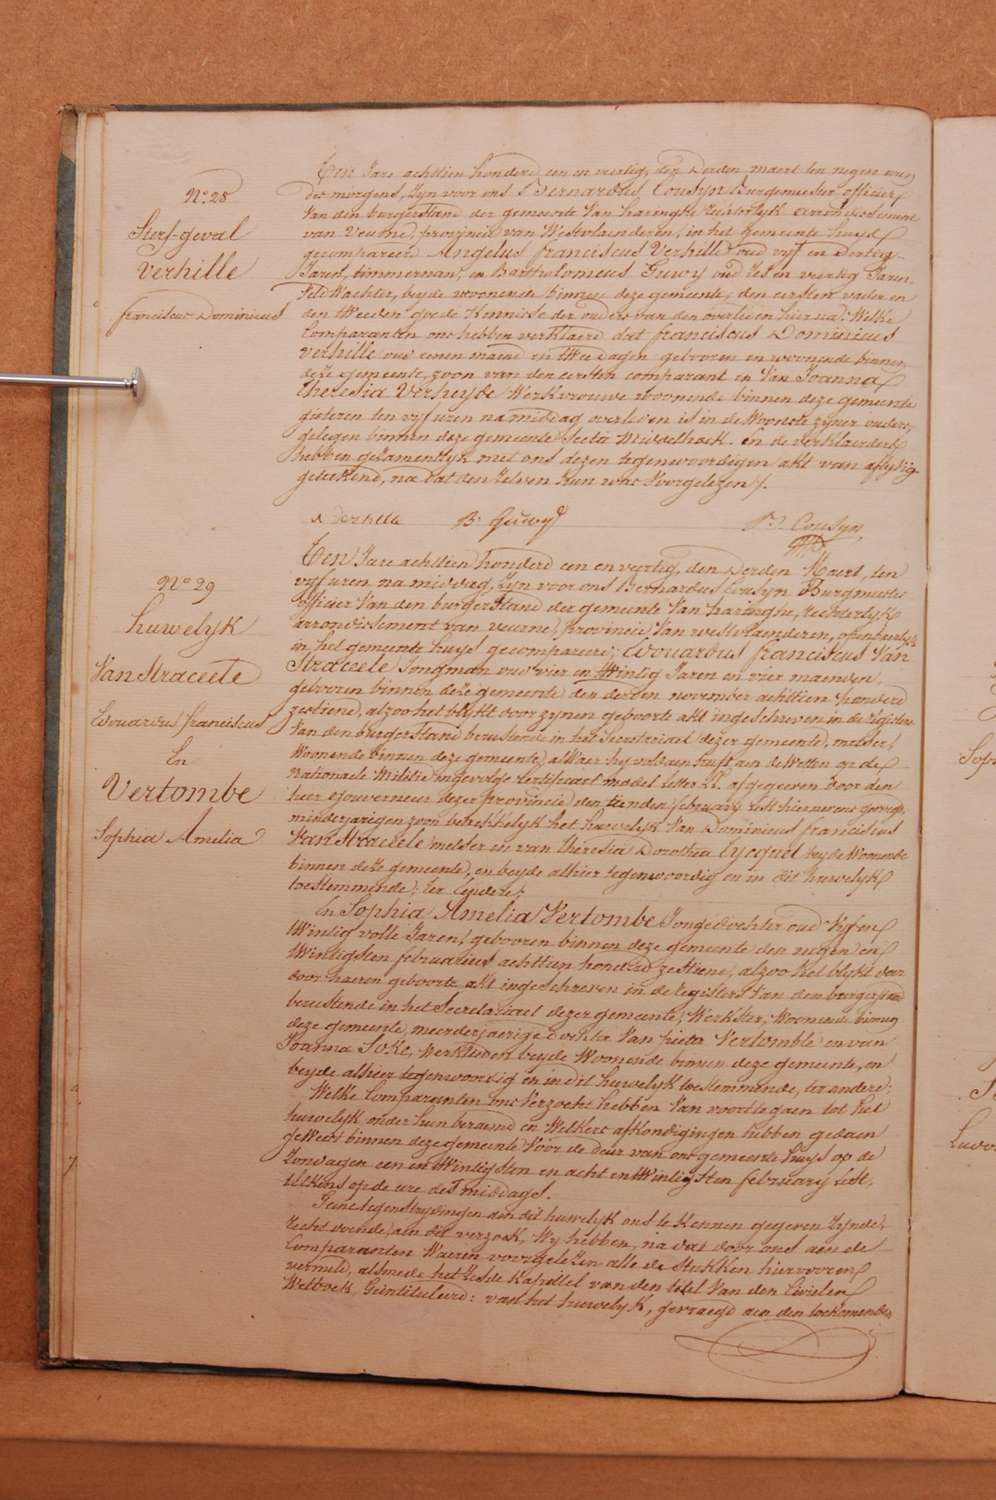 N.o 28
Sterf-geval
Verhille
franciscus Dominicus
Ten Jare achttien honderd een en veertig, den derden maert ten negen uren
des morgens, Zyn voor ons Bernardus Cousyn Burgemeester officier
Van den burgerstand der gemeente Van haringhe rechterlyk arrondissement
van Veurne, provincie van Westvlaenderen, in het gemeente huys
gecompareerd Angelus franciscus Verhille oud vyf en dertig
Jaren, timmerman, en Bartholomeus Guwy oud zes en veertig Jaren
Feld Wachter, beyde woonende binnen deze gemeente, den eersten vader en
den tweeden goede kennisse der ouders van den overleden hier na: Welke
Comparanten ons hebben verklaerd dat franciscus Dominicus
verhille oud eenen maend en twee dagen geboren en woonende binnen
deze gemeente, zoon van den eersten comparant en Van Joanna
theresia Verheyde Werkvrouwe woonende binnen deze gemeente
gisteren ten vyf uren namiddag overleden is in de Woonste zyner ouders
gelegen binnen deze gemeente Sectie Middelhoek. en de verklaerders
hebben gezamentlyk met ons dezen tegenwoordigen akt van aflyvig
geteekend, na dat den zelven hun was Voorgelezen /.
A Verhille B. Guwy B. Cousyn
N.o 29
huwelyk
Van Straceele
Edouardus franciscus
En
Vertombe
Sophia Amelia
Ten Jare achttien honderd een en veertig, den derden Maert, ten
vyf uren namiddag, Zyn voor ons Bernardus Cousyn Burgmeester
officier Van den burgerstand der gemeente Van haringhe, rechterlyk
arrondissement van veurne, provincie Van westvlaenderen, openbaerlyk
in het gemeente huys gecompareerd; Edouardus franciscus Van
Straceele Jongman oud vier en twintig Jaren en vier maenden,
geboren binnen deze gemeente den derden november achttien honderd
zestiene, alzoo het blykt door zynen geboorte akt ingeschreven in de registers
Van den burgerstand berustende in het Secretariaet dezer gemeente, melder,
Woonende binnen deze gemeente, alwaer hy voldaen heeft aen de Wetten op de
Nationaele Militie ingevolge Certificaet model letter LL. afgegeven door den
heer Gouverneur dezer provincie den tienden february lest hier nevens gevoegd,
minderjarigen zoon betrekkelyk het huwelyk Van Dominicus franciscus
Van Straceele melder en van Theresia Dorothea Cycquel beyde Woonende
binnen deze gemeente, en beyde alhier tegenwoordig en in dit huwelyk
toestemmende, ter Eendere;
En Sophia Amelia Vertombe Jongedochter oud Vyf en
twintig volle Jaren, gebooren binnen deze gemeente den negen en
twintigsten februarius achttien honderd zestiene, alzoo het blykt door
door haeren geboorte akt ingeschreven in de registers Van den burgerstand
berustende in het Secretariaet dezer gemeente; Werkster, Woonende binnen
deze gemeente, meerderjaerige dochter Van pieter Vertomble en van
Joanna Soke, Werklieden beyde Woonende binnen deze gemeente, en
beyde alhier tegenwoordig en in dit huwelyk toestemmende, ter andere;
Welke Comparanten ons Verzocht hebben Van voort te gaen tot het
huwelyk onder hun beraemd en Welkers afkondigingen hebben gedaen
geweest binnen deze gemeente Voor de deur van ons gemeente huys op de
Zondagen een en twintigsten en acht en twintigsten february lest,
telkens op de ure des middags.
Geene tegenstrydingen aen dit huwelyk ons te kennen gegeven Zynde,
recht doende, aen dit verzoek, Wy hebben, na dat door ons aen de
Comparanten Waeren voorgelezen alle de Stukken hiervooren
vermeld, alsmede het Zesde kapittel van den titel Van den Civielen
Wetboek, Geintituleerd: van het huwelyk, gevraegd aen den toekomenden